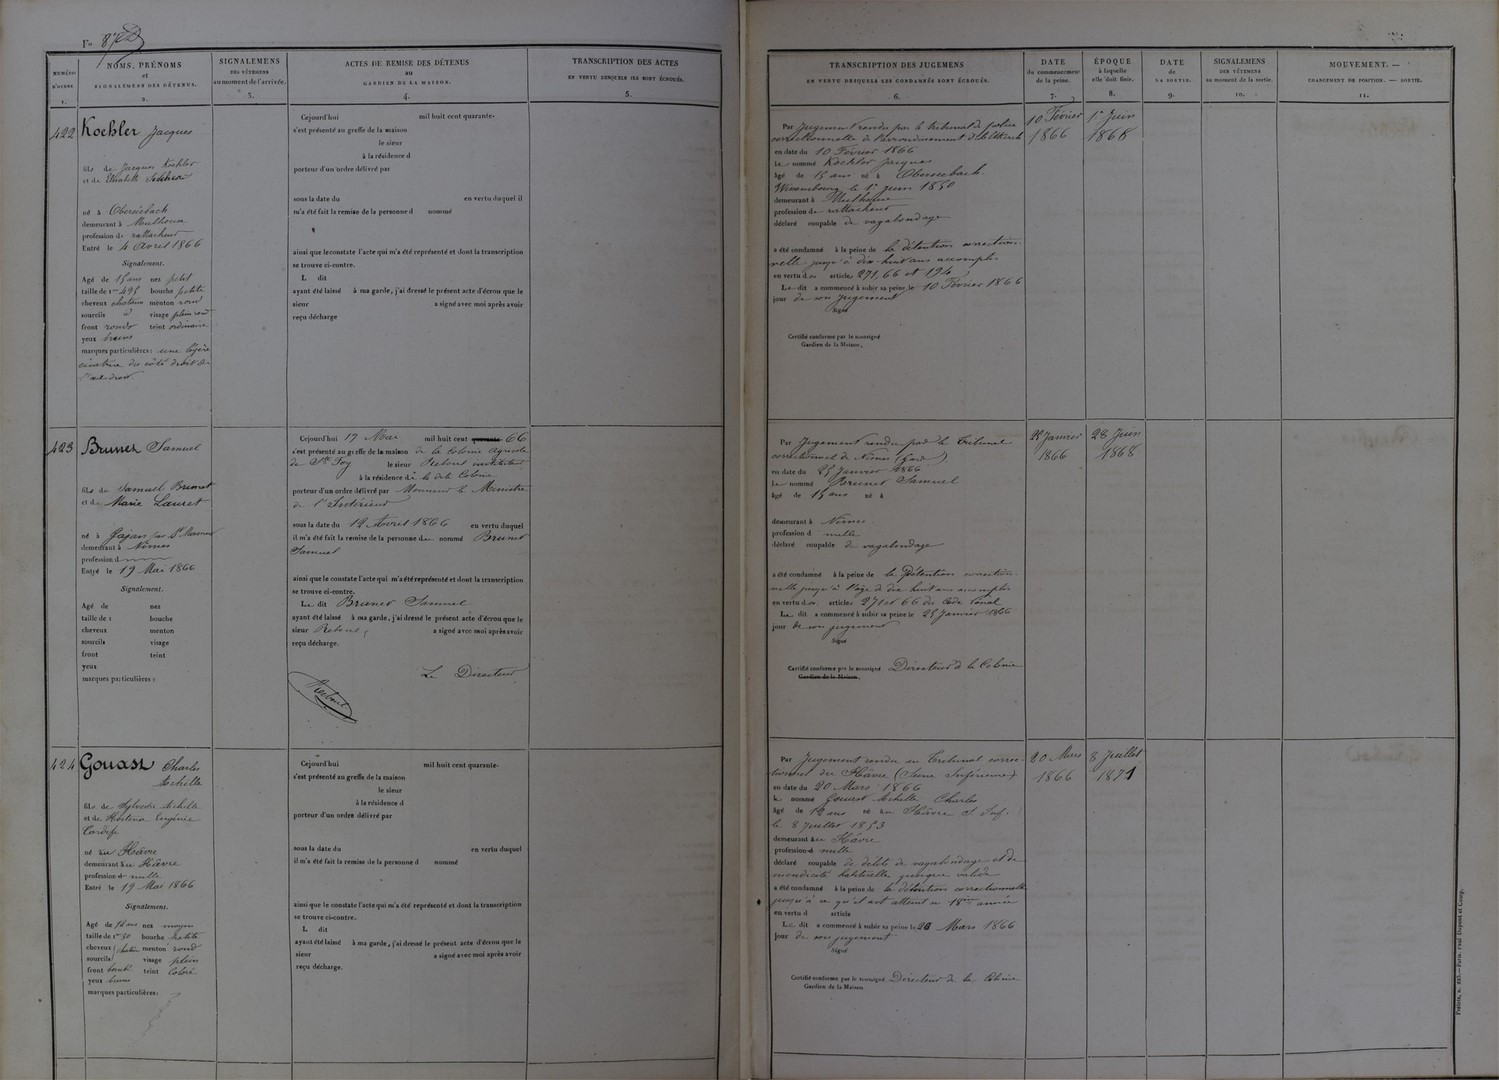 Fo 87
NUMÉRO D'ORDRE 1.
NOMS, PRÉNOMS et SIGNALEMENS DES DÉTENUS. 2.
SIGNALEMENS DES VÊTEMENS au moment de l'arrivée. 3.
ACTES DE REMISE DES DÉTENUS au GARDIEN DE LA MAISON. 4.
TRANSCRIPTION DES ACTES EN VERTU DESQUELS ILS SONT ÉCROUÉS. 5.
TRANSCRIPTION DES JUGEMENS EN VERTU DESQUELS LES CONDAMNÉS SONT ÉCROUÉS. 6.
DATE du commencement de la peine. 7.
ÉPOQUE à laquelle elle doit finir. 8.
DATE de SA SORTIE. 9.
SIGNALEMENS DES VÊTEMENS au moment de la sortie. 10.
MOUVEMENT. — CHANGEMENT DE POSITION. — SORTIE. 11.
422
Koehler Jacques
fils de Jacques Koehler
et de Elisabeth
né à Oberseebach
demeurant à Mulhouse
profession de rattacheur
Entré le 4 Avril 1866
Signalement.
Agé de 15 ans nez petit
taille de 1m 495 bouche petite
cheveux chatain menton rond
sourcils id visage plein rond
front rond teint ordinaire
yeux bruns
marques particulières : une légère
cicatrice du côté droit de
l'œil droit.
Cejourd'hui mil huit cent quarante-
s'est présenté au greffe de la maison
le sieur
à la résidence d
porteur d'un ordre délivré par
sous la date du en vertu duquel il
m'a été fait la remise de la personne d nommé
ainsi que le constate l'acte qui m'a été représenté et dont la transcription
se trouve ci-contre.
L dit
ayant été laissé à ma garde, j'ai dressé le présent acte d'écrou que le
sieur a signé avec moi après avoir
reçu décharge
Par Jugement rendu par le tribunal de police
correctionnelle de l'arrondissement d'Altkirch
en date du 10 Février 1866
Le nommé Koehler Jacques
âgé de 15 ans né à Oberseebach
Wissembourg le 1er juin 1850
demeurant à Mulhouse
profession de rattacheur
déclaré coupable de vagabondage
a été condamné à la peine de la détention correction-
nelle jusqu'à dix-huit ans accomplis
en vertu des articles 271, 66 et 194
Le dit a commencé à subir sa peine le 10 Février 1866
jour de son jugement
Signé
Certifié conforme par le soussigné
Gardien de la Maison,
10 Février 1866
1er Juin 1868
423
Brunet Samuel
fils de Samuel Brunet
et de Marie Lauret
né à Gajan par St Mamer
demeurant à Nîmes
profession d
Entré le 19 Mai 1866
Signalement.
Agé de nez
taille de 1 bouche
cheveux menton
sourcils visage
front teint
yeux
marques particulières :
Cejourd'hui 19 Mai mil huit cent quarante 66
s'est présenté au greffe de la maison de la Colonie Agricole
de Ste Foy le sieur Rebout instituteur
à la résidence de la dite Colonie
porteur d'un ordre délivré par Monsieur le Ministre
de l'Intérieur
sous la date du 12 Avril 1866 en vertu duquel
il m'a été fait la remise de la personne de nommé Brunet
Samuel
ainsi que le constate l'acte qui m'a été représenté et dont la transcription
se trouve ci-contre.
Le dit Brunet Samuel
ayant été laissé à ma garde, j'ai dressé le présent acte d'écrou que le
sieur Rebout, a signé avec moi après avoir
reçu décharge.
Le Directeur
Rebout
Par Jugement rendu par le Tribunal
correctionnel de Nîmes (Gard)
en date du 25 Janvier 1866
Le nommé Brunet Samuel
âgé de 15 ans né à
demeurant à Nîmes
profession d nulle
déclaré coupable de vagabondage
a été condamné à la peine de la Détention correction-
nelle jusqu'à l'âge de dix huit ans accomplis
en vertu des articles 271 et 66 du Code Pénal
Le dit a commencé à subir sa peine le 25 Janvier 1866
jour de son jugement
Signé
Certifié conforme par le soussigné Directeur de la Colonie
Gardien de la Maison.
25 Janvier 1866
28 Juin 1868
424
Gouast Charles
Achille
fils de Sylvestre Achille
et de Eugénie
né au Hâvre
demeurant au Hâvre
profession de nulle
Entré le 19 Mai 1866
Signalement.
Agé de 12 ans nez moyen
taille de 1m 30 bouche petite
cheveux chatain menton rond
sourcils visage plein
front teint Coloré
yeux bruns
marques particulières :
Cejourd'hui mil huit cent quarante-
s'est présenté au greffe de la maison
le sieur
à la résidence d
porteur d'un ordre délivré par
sous la date du en vertu duquel
il m'a été fait la remise de la personne d nommé
ainsi que le constate l'acte qui m'a été représenté et dont la transcription
se trouve ci-contre.
L dit
ayant été laissé à ma garde, j'ai dressé le présent acte d'écrou que le
sieur a signé avec moi après avoir
reçu décharge.
Par Jugement rendu au Tribunal correc-
tionnel du Hâvre (Seine Inférieure)
en date du 20 Mars 1866
le nommé Gouast Achille Charles
âgé de 12 ans né au Hâvre S. Inf.
le 8 Juillet 1853
demeurant au Hâvre
profession d nulle
déclaré coupable de délits de vagabondage et de
mendicité habituelle quoique valide
a été condamné à la peine de la détention correctionnelle
jusqu'à ce qu'il ait atteint sa 18me année
en vertu d article
Le dit a commencé à subir sa peine le 20 Mars 1866
jour de son jugement
Signé
Certifié conforme par le soussigné Directeur de la Colonie
Gardien de la Maison
20 Mars 1866
8 Juillet 1871